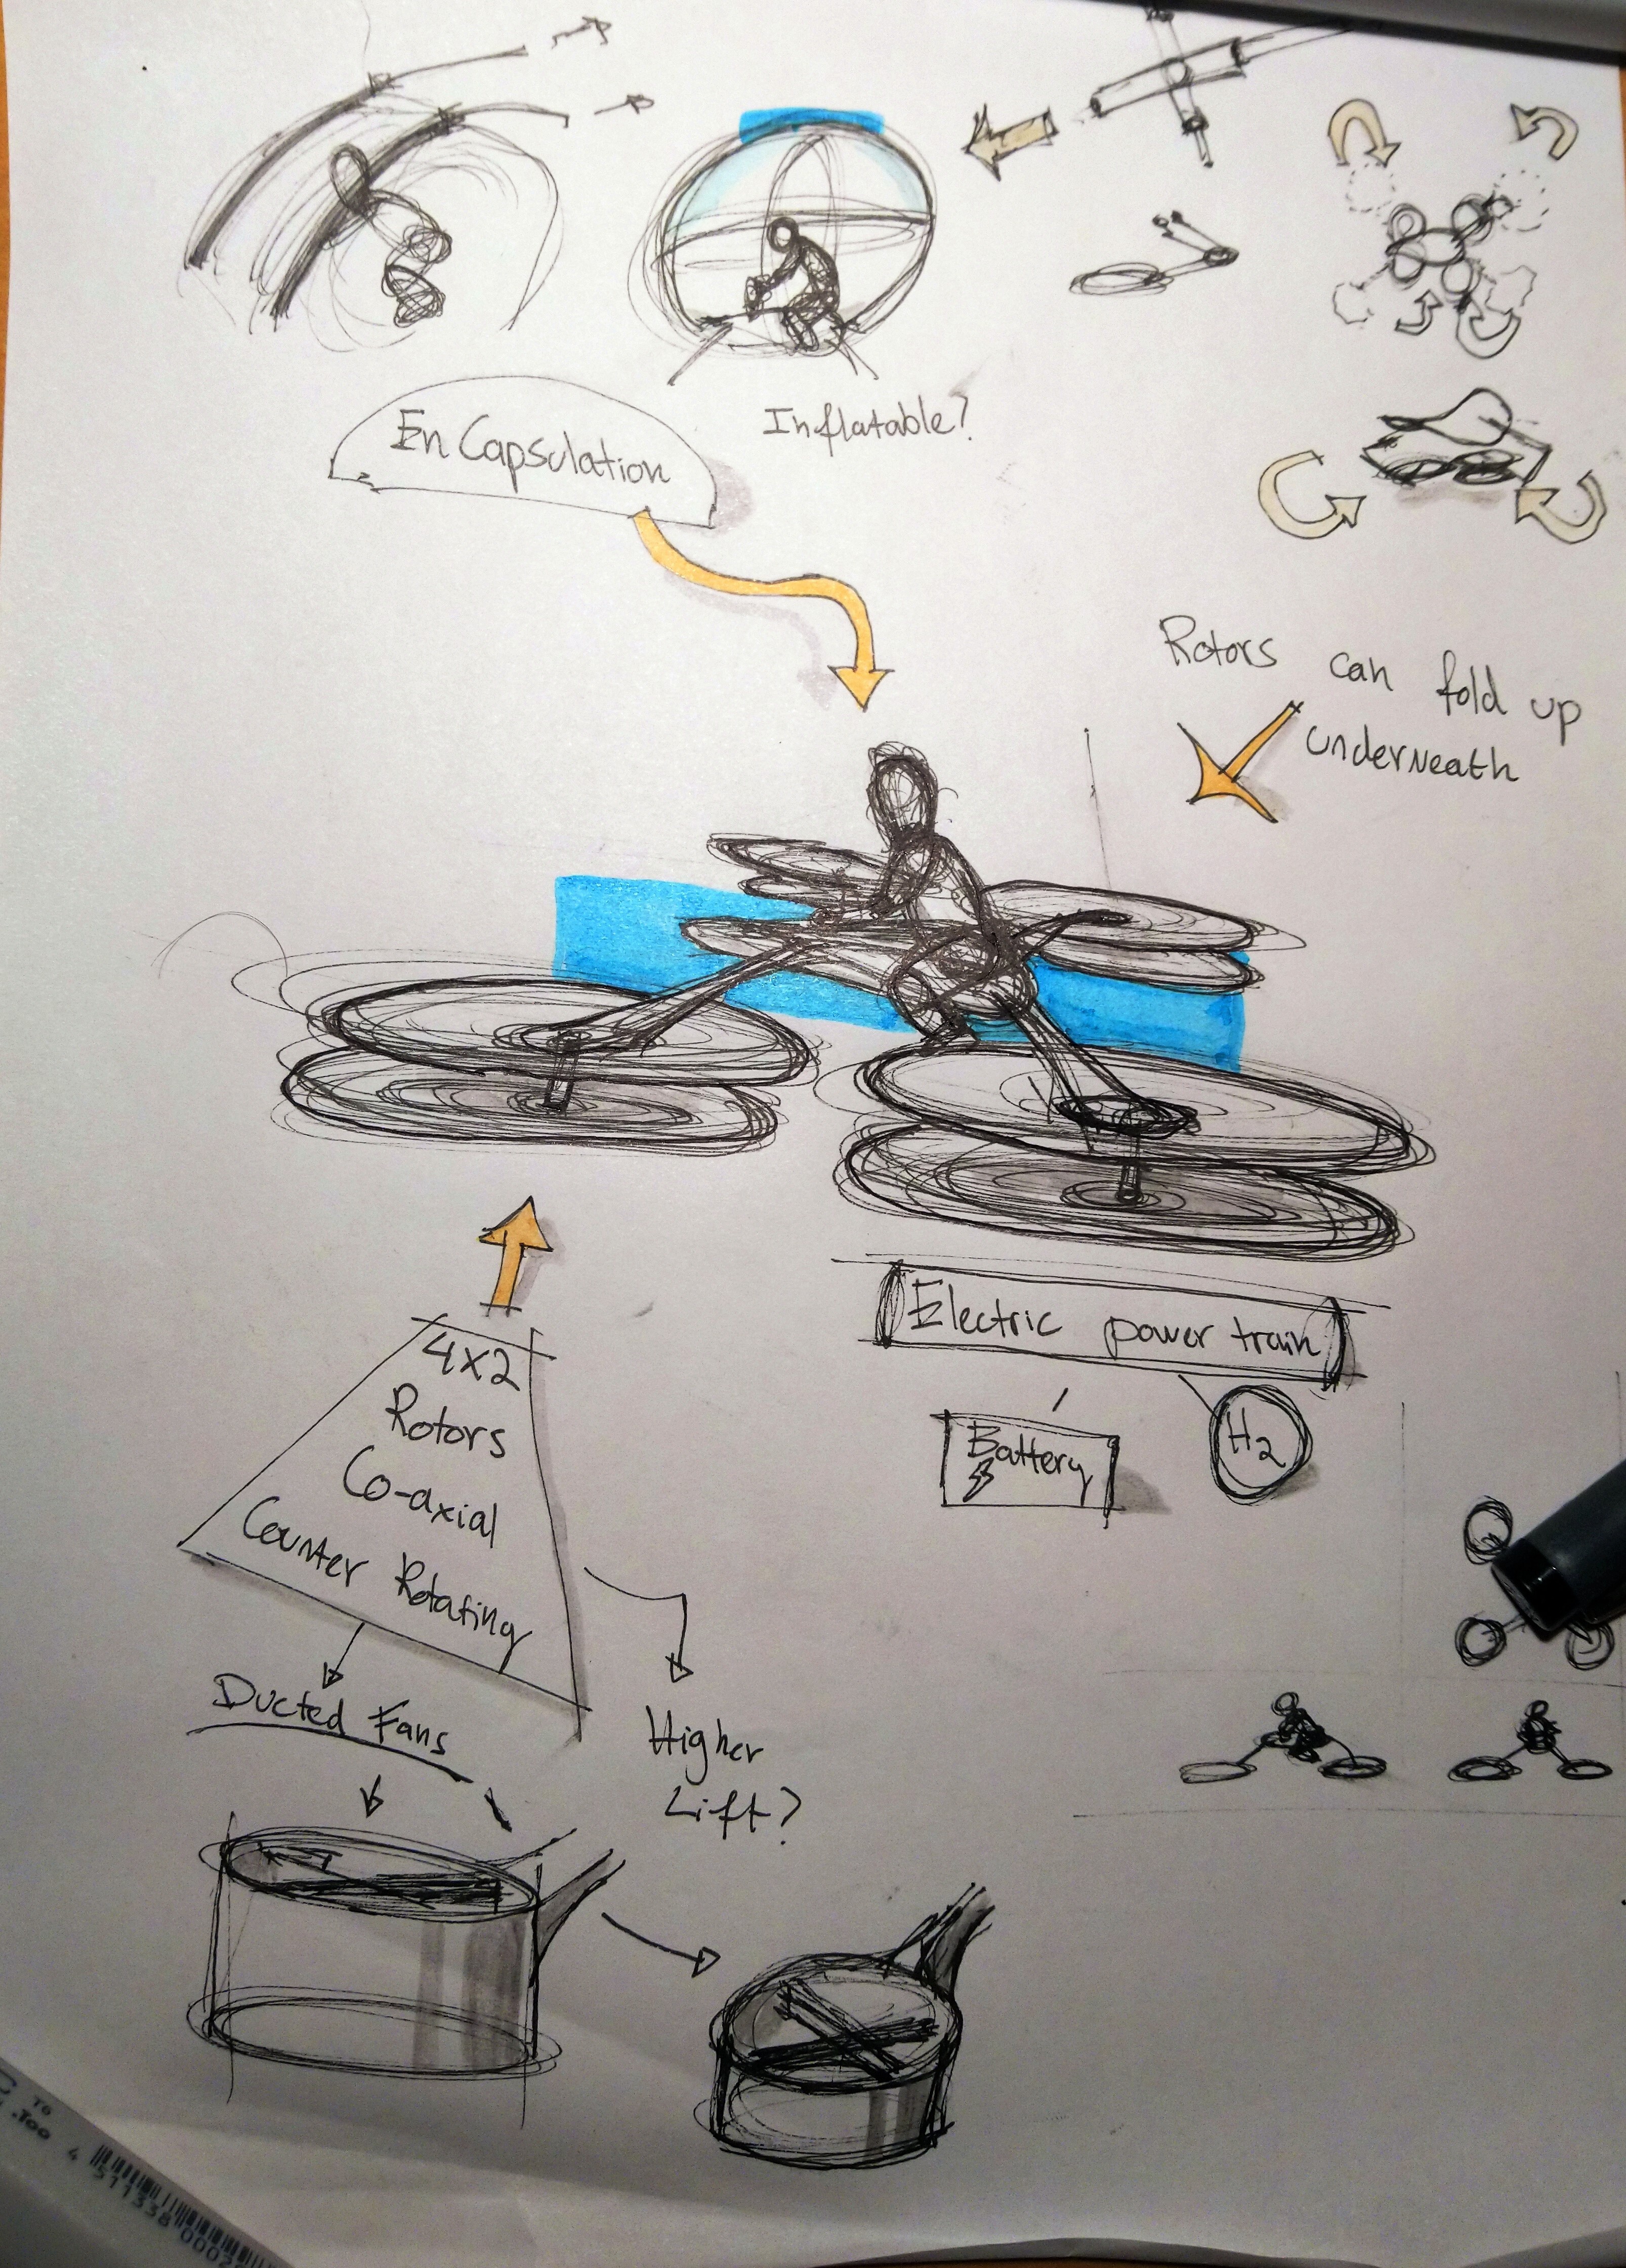 En Capsulation
Inflatable?
Rotors can fold up
underneath
Electric power train
Battery
H2
4x2
Rotors
Co-axial
Counter Rotating
Ducted Fans
Higher
Lift?
TO
.Too